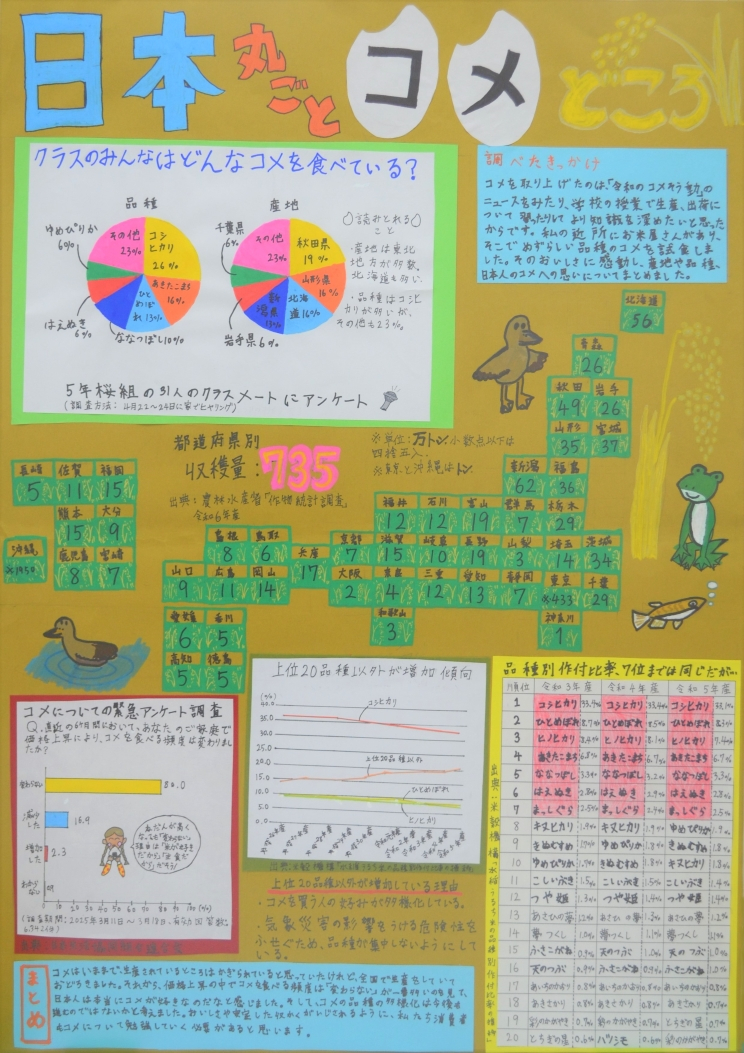 日本丸ごとコメどころ
クラスのみんなはどんなコメを食べている?
品種
コシヒカリ 26%
あきたこまち 16%
ひとめぼれ 13%
ななつぼし10%
はえぬき 6%
ゆめぴりか 6%
その他 23%
産地
秋田県 19%
山形県 16%
北海道16%
新潟県 13%
岩手県6%
千葉県 6%
その他 23%
読みとれること
・産地は東北
地方が多数。
北海道も多い。
・品種はコシヒ
カリが多いが、
その他も23%。
5年桜組の31人のクラスメートにアンケート
(調査方法:4月22〜24日に客でヒヤリング)
調べたきっかけ
コメを取り上げたのは、「令和のコメそう動」の
ニュースをみたり、学校の授業で生産、出荷に
ついて習ったりしてより知識を深めたいと思った
からです。私の近所にお米屋さんがあり、
そこでめずらしい品種のコメを試食しま
した。そのおいしさに感動し、産地や品種、
日本人のコメへの思いについてまとめました。
都道府県別
収穫量:735
※単位:万トン 小数点以下は
四捨五入。
※東京と沖縄はトン
出典:農林水産省「作物統計調査」
令和6年産
北海道 56
青森 26
秋田 49
岩手 26
山形 35
宮城 37
新潟 62
福島 36
福井 12
石川 12
富山 19
群馬 7
栃木 29
京都 7
滋賀 15
岐阜 10
長野 19
山梨 3
埼玉 14
茨城 34
島根 8
鳥取 6
兵庫 17
大阪 2
奈良 4
三重 12
愛知 13
静岡 7
東京 ※433
千葉 29
山口 9
広島 11
岡山 14
和歌山 3
神奈川 1
長崎 5
佐賀 11
福岡 15
熊本 15
大分 9
鹿児島 8
宮崎 7
沖縄 ※1950
愛媛 6
香川 5
高知 5
徳島 5
コメについての緊急アンケート調査
Q.直近の6か月間において、あなたのご家庭で
価格上昇により、コメを食べる頻度は変わりまし
たか?
変わらない 80.0
減少した 16.9
増加した 2.3
わからない
0 10 20 30 40 50 60 70 80 90 100 (%)
上位20品種以外が増加傾向
(%)
40.0
35.0
30.0
25.0
20.0
15.0
10.0
5.0
0.0
コシヒカリ
上位20品種以外
ひとめぼれ
ヒノヒカリ
上位20品種以外が増加している理由
・コメを買う人の好みが多様化している。
・気象災害の影響をうける危険性を
ふせぐため、品種が集中しないようにして
いる。
品種別作付比率、7位までは同じだが…
順位 令和3年産 令和4年産 令和5年産
1 コシヒカリ 33.4% コシヒカリ 33.4% コシヒカリ 33.1%
2 ひとめぼれ 8.7% ひとめぼれ 8.5% ひとめぼれ
3 ヒノヒカリ 8.4% ヒノヒカリ 8.1% ヒノヒカリ 7.4%
4 あきたこまち 6.8% あきたこまち 6.7% あきたこまち 6.7%
5 ななつぼし 3.3% ななつぼし 3.2% ななつぼし 3.3%
6 はえぬき 2.8% はえぬき 2.9% はえぬき 2.8%
7 まっしぐら 2.5% まっしぐら まっしぐら 2.5%
8 キヌヒカリ 1.9% キヌヒカリ 1.9% ゆめぴりか
9 きぬむすめ きぬむすめ 1.8% きぬむすめ 1.8%
10 ゆめぴりか ゆめぴりか キヌヒカリ 1.8%
11 こしいぶき 1.5% こしいぶき 1.5% こしいぶき 1.4%
12 つや姫 つや姫 つや姫
13 あさひの夢 あさひの夢 あさひの夢
14 夢つくし 夢つくし 夢つくし
15 ふさこがね 天のつぶ 天のつぶ
16 天のつぶ ふさこがね ふさこがね
17 あいちのかおり あいちのかおり あいちのかおり
18 あきさかり あきさかり あきさかり
19 彩のかがやき 彩のかがやき とちぎの星
20 とちぎの星 彩のかがやき
まとめ
コメはいままで、生産されているところはかぎられていると思っていたけれど、全国で生産をしていて
おどろきました。それから、価格上昇の中でコメを食べる頻度は「変わらない」が一番多いのを見て、
日本人は本当にコメが好きなのだなと思いました。そして、コメの品種の多様化は今後も
進むのではないかと考えました。おいしさや安定した収かくがいじされるように、私たち消費者
もコメについて勉強していく必要があると思います。